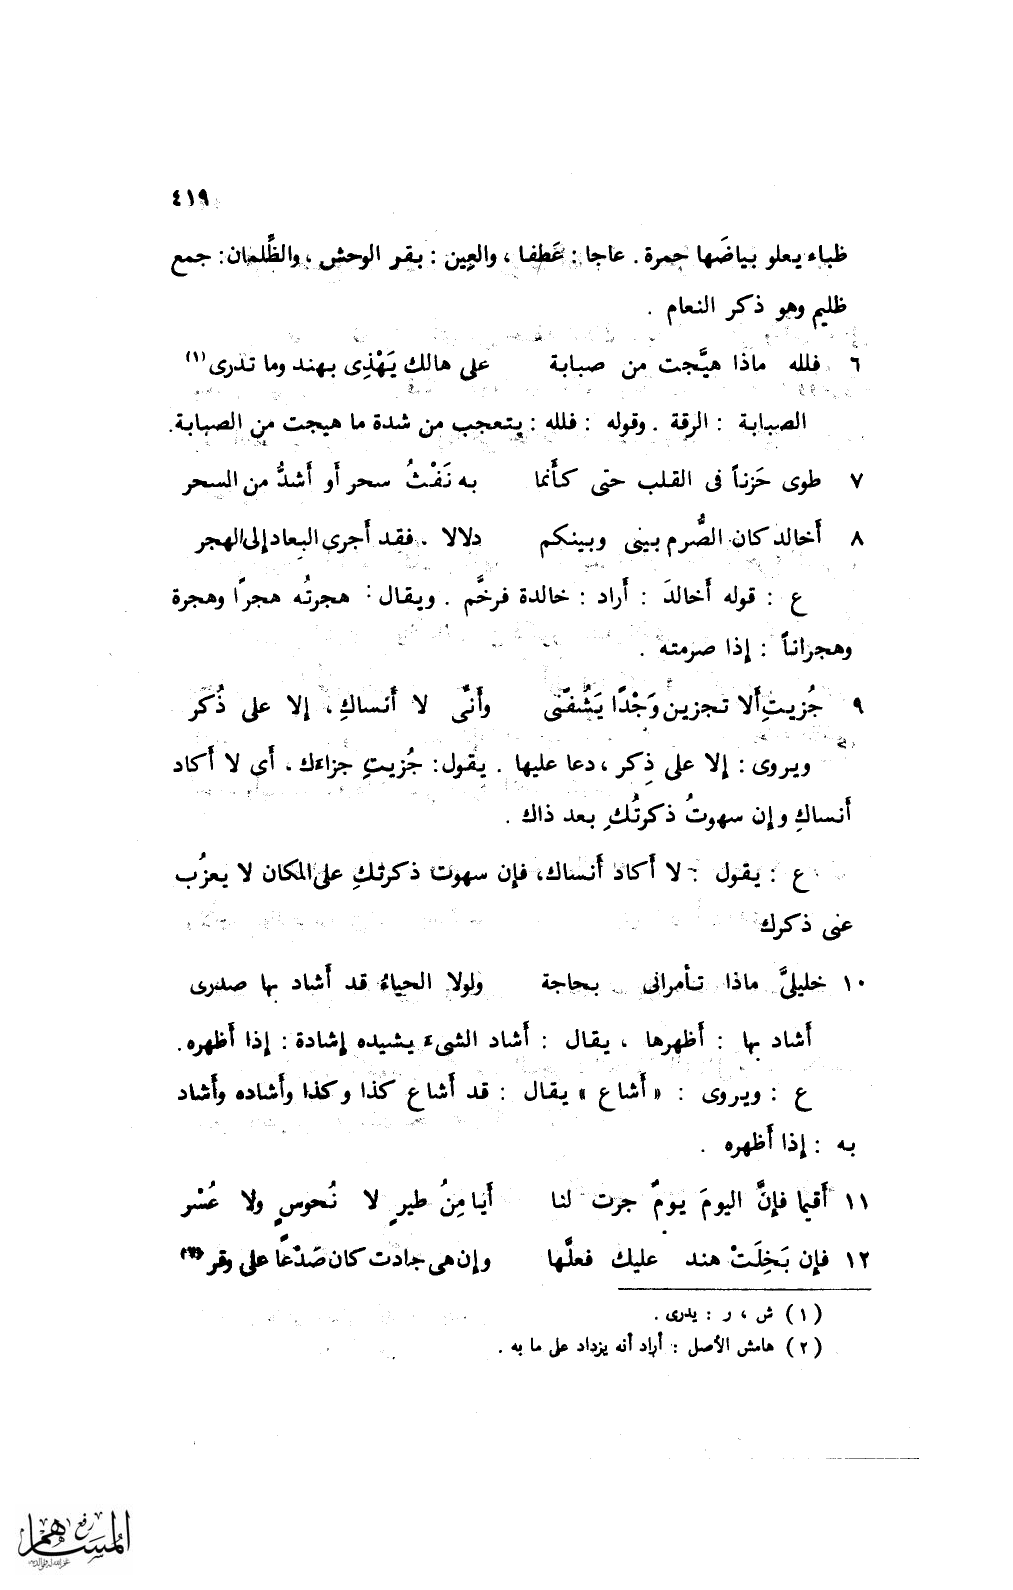 ٤١٩
ظباء يعلو بياضَها حمرة . عاجا : عَطفا ، والعِين : بقر الوحش ، والظِّلمان : جمع
ظليم وهو ذكر النعام .
٦ فلله ماذا هيَّجت من صبابة على هالك يَهْذِى بهند وما تدرى (١)
الصبابة : الرقة . وقوله : فلله : يتعجب من شدة ما هيجت من الصبابة .
٧ طوى حَزناً فى القلب حتى كأَنما به نَفْثُ سحر أو أَشدُّ من السحر
٨ أَخالد كان الصُّرم بينى وبينكم دلالا . فقد أَجرى البعاد إلى الهجر
ع : قوله أَخالدَ : أَراد : خالدة فرخَّم . ويقال : هجرتُه هجرًا وهجرة
وهجراناً : إذا صرمته .
٩ جُزيتِ أَلا تجزين وَجْدًا يَشُفّنى وأَنّى لا أَنساكِ ، إلا على ذُكر
ويروى : إلا على ذِكر ، دعا عليها . يقول : جُزيتِ جزاءك . أى لا أَكاد
أَنساكِ وإن سهوتُ ذكرتُكِ بعد ذاك .
ع : يقول : لا أَكاد أَنساك ، فإن سهوت ذكرتكِ على المكان لا يعزُب
عنى ذكرك
١٠ خليلىَّ ماذا تأمرانى بحاجة ولولا الحياءُ قد أَشاد بها صدرى
أَشاد بها : أَظهرها ، يقال : أَشاد الشىء يشيده إشادة : إذا أَظهره .
ع : ويروى : « أَشاع » يقال : قد أَشاع كذا وكذا وأَشاده وأَشاد
به : إذا أَظهره .
١١ أَقيما فإنَّ اليومَ يومٌ جرت لنا أَيامِنُ طيرٍ لا نُحوسٍ ولا عُسْر
١٢ فإن بَخِلَتْ هند عليك فعلَّها وإن هى جادت كان صَدْعًا على وقر (٢)
(١) ش ، ر : يدرى .
(٢) هامش الأصل : أراد أنه يزداد على ما به .
رفع
المساهم